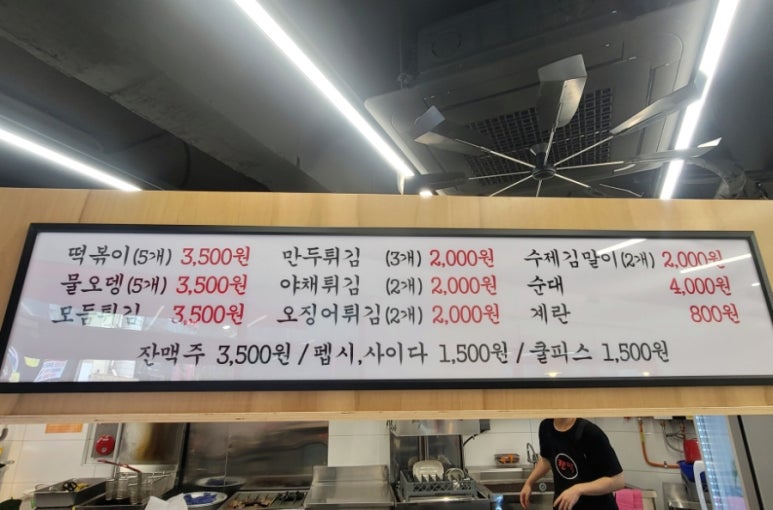 떡볶이(5개) 3,500원 만두튀김 (3개) 2,000원 수제김말이(2개) 2,000원
물오뎅(5개) 3,500원 야채튀김 (2개) 2,000원 순대 4,000원
모듬튀김 3,500원 오징어튀김(2개) 2,000원 계란 800원
잔맥주 3,500원 / 펩시,사이다 1,500원 / 쿨피스 1,500원